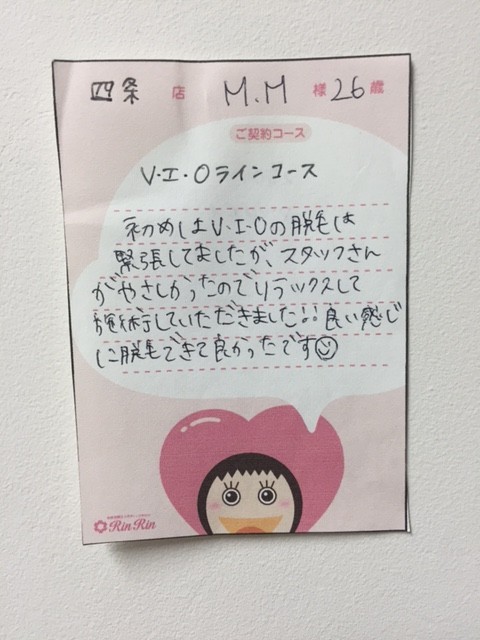 四条 店 M.M 様 26歳
ご契約コース
V・I・Oラインコース
初めはV・I・Oの脱毛は
緊張してましたが、スタッフさん
がやさしかったのでリラックスして
施術していただきました!! 良い感じ
に脱毛できて良かったです☺
RinRin